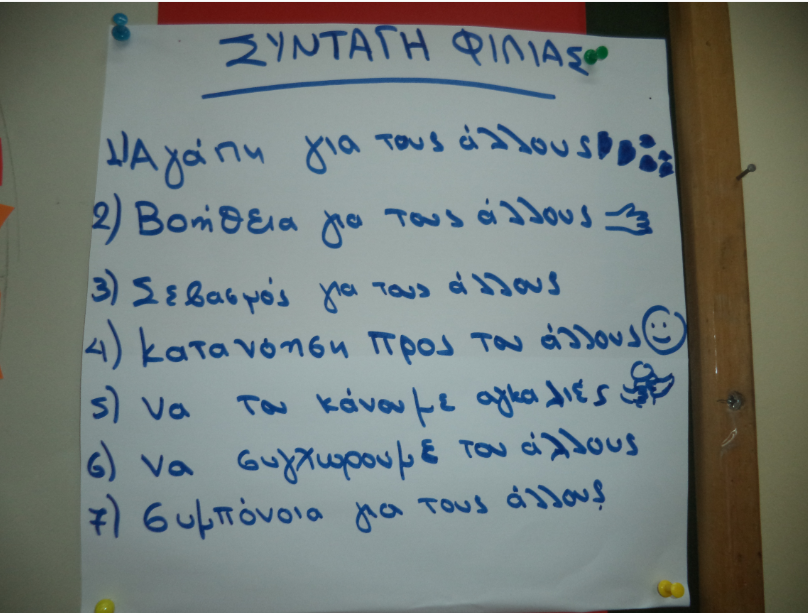 ΣΥΝΤΑΓΗ ΦΙΛΙΑΣ
1) Αγάπη για τους άλλους
2) Βοήθεια για τους άλλους
3) Σεβασμός για τους άλλους
4) κατανόηση προς του άλλους
5) να του κάνουμε αγκαλιές
6) να συγχωρουμε του άλλους
7) συμπόνοια για τους άλλους